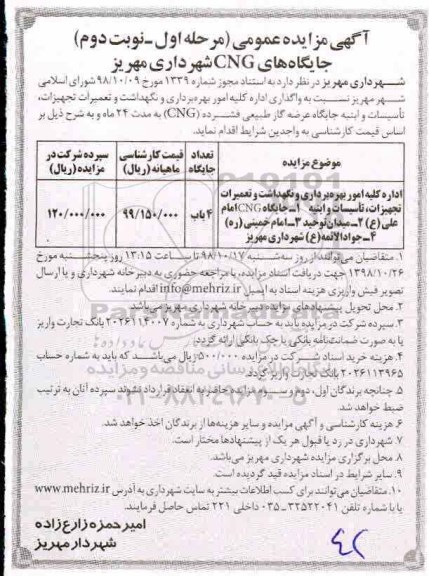 آگهی مزایده عمومی (مرحله اول ـ نوبت دوم)
جایگاه‌های CNG شهرداری مهریز
شهرداری مهریز در نظر دارد به استناد مجوز شماره ۱۳۳۹ مورخ ۹۸/۱۰/۰۹ شورای اسلامی
شهر مهریز نسبت به واگذاری اداره کلیه امور بهره‌برداری و نگهداشت و تعمیرات تجهیزات،
تأسیسات و ابنیه جایگاه عرضه گاز طبیعی فشرده (CNG) به مدت ۲۴ ماه و به شرح ذیل بر
اساس قیمت کارشناسی به واجدین شرایط اقدام نماید.
موضوع مزایده
تعداد جایگاه
قیمت کارشناسی ماهیانه (ریال)
سپرده شرکت در مزایده (ریال)
اداره کلیه امور بهره‌برداری و نگهداشت و تعمیرات
تجهیزات، تأسیسات و ابنیه ۱ـ جایگاه CNG امام
علی (ع) ۲ـ میدان توحید ۳ـ امام خمینی (ره)
۴ـ جوادالائمه (ع) شهرداری مهریز
۴ باب
۹۹/۱۵۰/۰۰۰
۱۲۰/۰۰۰/۰۰۰
۱. متقاضیان می‌توانند از روز سه‌شنبه ۹۸/۱۰/۱۷ تا ساعت ۱۳:۱۵ روز پنجشنبه مورخ
۱۳۹۸/۱۰/۲۶ جهت دریافت اسناد مزایده، با مراجعه حضوری به دبیرخانه شهرداری و یا ارسال
تصویر فیش واریزی هزینه اسناد به ایمیل info@mehriz.ir اقدام نمایند.
۲. محل تحویل پیشنهادهای مزایده دبیرخانه شهرداری مهریز می‌باشد.
۳. سپرده شرکت در مزایده باید به حساب شهرداری به شماره ۲۰۲۶۱۱۴۰۰۷ بانک تجارت واریز
یا به صورت ضمانت‌نامه بانکی یا چک بانکی ارائه گردد.
۴. هزینه خرید اسناد شرکت در مزایده ۵۰۰/۰۰۰ ریال می‌باشد که باید به شماره حساب
۲۰۲۶۱۱۳۹۶۵ بانک تجارت واریز گردد.
۵. چنانچه برندگان اول، دوم و سوم مزایده حاضر به انعقاد قرارداد نشوند سپرده آنان به ترتیب
ضبط خواهد شد.
۶. هزینه کارشناسی و آگهی مزایده و سایر هزینه‌ها از برندگان اخذ خواهد شد.
۷. شهرداری در رد یا قبول هر یک از پیشنهادها مختار است.
۸. محل برگزاری مزایده شهرداری مهریز می‌باشد.
۹. سایر شرایط در اسناد مزایده قید گردیده است.
۱۰. متقاضیان می‌توانند برای کسب اطلاعات بیشتر به سایت شهرداری به آدرس www.mehriz.ir
یا با شماره تلفن ۳۲۵۲۲۰۴۱ـ۰۳۵ داخلی ۲۲۱ تماس حاصل فرمایند.
امیر حمزه زارع زاده
شهردار مهریز